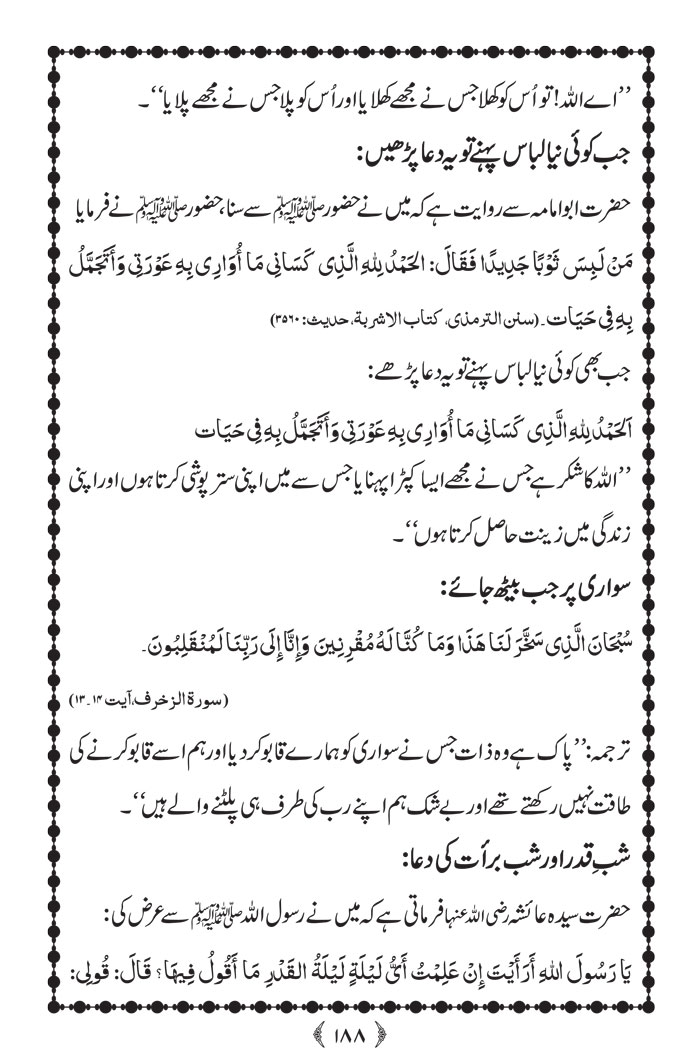 ’’اے اللہ! تو اُس کو کھلا جس نے مجھے کھلایا اور اُس کو پلا جس نے مجھے پلایا‘‘۔
جب کوئی نیا لباس پہنے تو یہ دعا پڑھیں:
حضرت ابوامامہ سے روایت ہے کہ میں نے حضور ﷺ سے سنا، حضور ﷺ نے فرمایا
مَنْ لَبِسَ ثَوْبًا جَدِيدًا فَقَالَ: الحَمْدُ لِلهِ الَّذِی كَسَانِی مَا أُوَارِی بِهِ عَوْرَتِی وَأَتَجَمَّلُ
بِهِ فِی حَيَات۔ (سنن الترمذی، کتاب الاشربة، حدیث: ۳۵۶۰)
جب بھی کوئی نیا لباس پہنے تو یہ دعا پڑھے:
اَلحَمْدُ لِلهِ الَّذِی كَسَانِی مَا أُوَارِی بِهِ عَوْرَتِی وَأَتَجَمَّلُ بِهِ فِی حَيَات
’’اللہ کا شکر ہے جس نے مجھے ایسا کپڑا پہنایا جس سے میں اپنی ستر پوشی کرتا ہوں اور اپنی
زندگی میں زینت حاصل کرتا ہوں‘‘۔
سواری پر جب بیٹھ جائے:
سُبْحَانَ الَّذِی سَخَّرَ لَنَا هَذَا وَمَا كُنَّا لَهُ مُقْرِنِينَ وَإِنَّا إِلَى رَبِّنَا لَمُنْقَلِبُونَ۔
(سورة الزخرف، آیت ۱۴۔۱۳)
ترجمہ: ’’پاک ہے وہ ذات جس نے سواری کو ہمارے قابو کر دیا اور ہم اسے قابو کرنے کی
طاقت نہیں رکھتے تھے اور بے شک ہم اپنے رب کی طرف ہی پلٹنے والے ہیں‘‘۔
شبِ قدر اور شب برأت کی دعا:
حضرت سیدہ عائشہ رضی اللہ عنہا فرماتی ہے کہ میں نے رسول اللہ ﷺ سے عرض کی:
يَا رَسُولَ اللهِ أَرَأَيْتَ إِنْ عَلِمْتُ أَیُّ لَيْلَةٍ لَيْلَةُ القَدْرِ مَا أَقُولُ فِيهَا؟ قَالَ: قُولِی:
۱۸۸